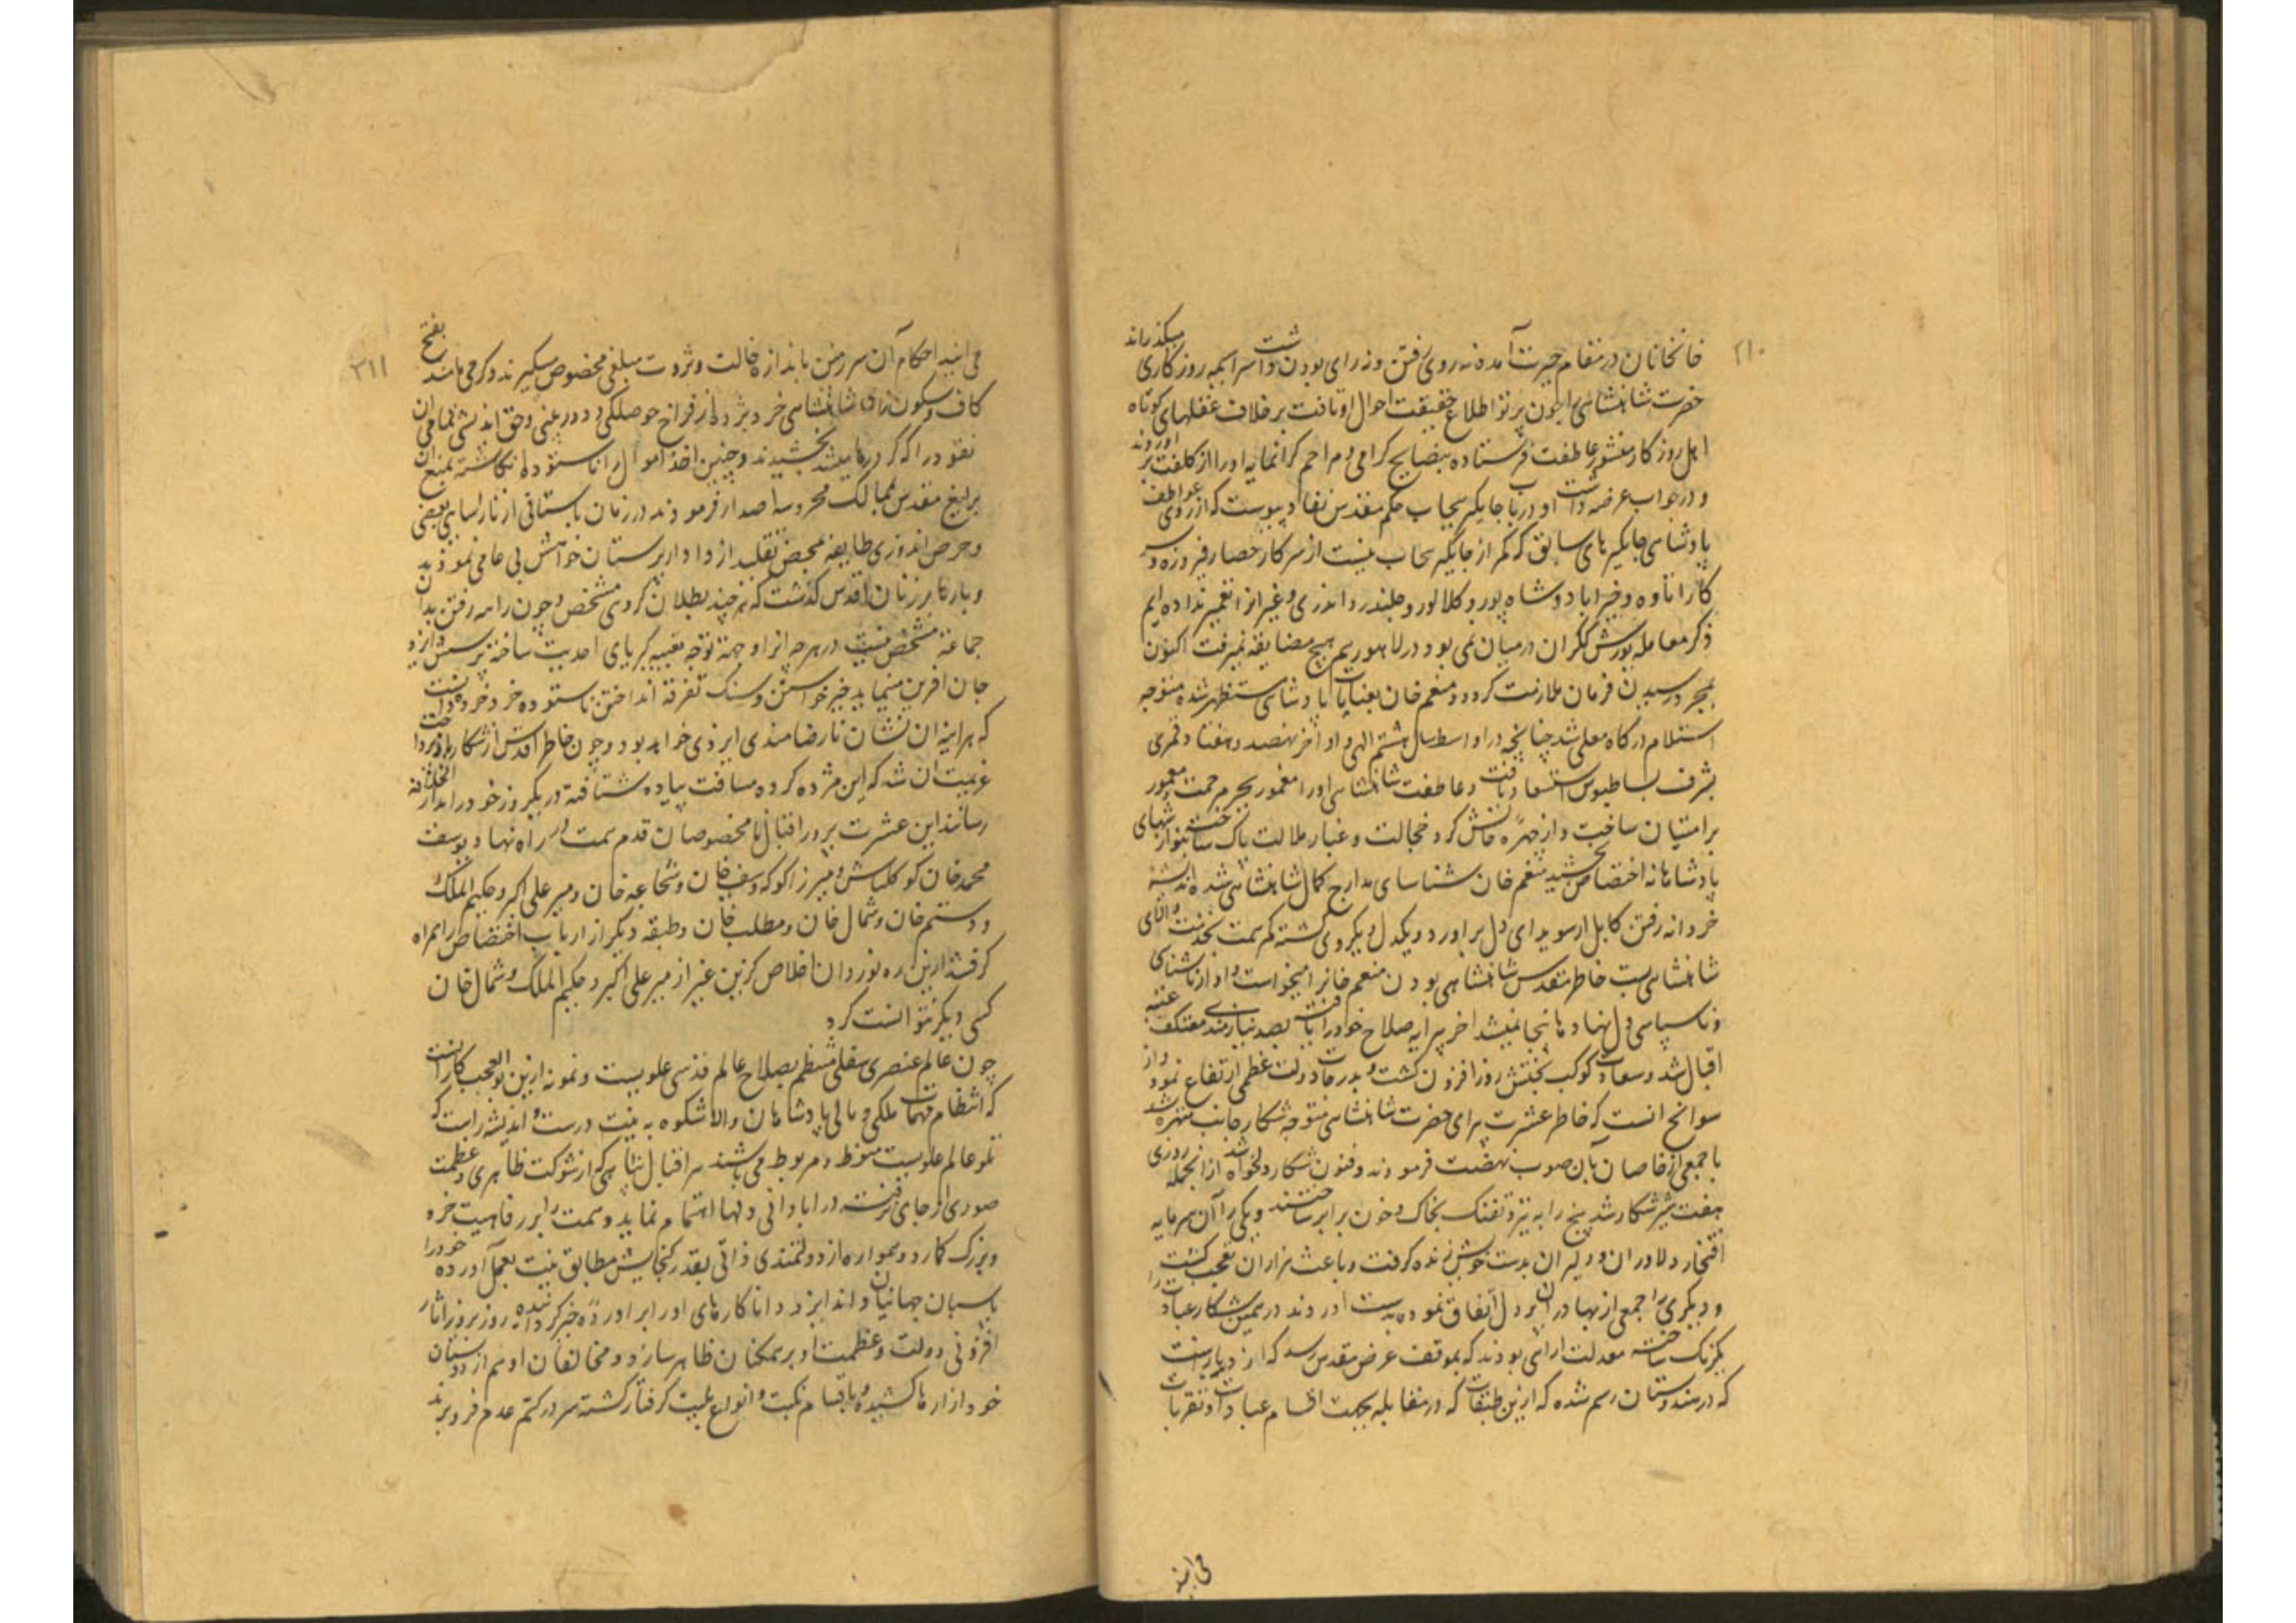 ۲۱۰
خانخانان در مقام حیرت آمده نه روی رفتن و نه رای بودن داشت سراسیمه روزکاری میکذراند
حضرت شاهنشاهی را چون پرتو اطلاع بر حقیقت احوال او تافت برخلاف عقلهای کوتاه
اهل روزکار منشور عاطفت فرستاده بنصایح کرامی و مراحم کرانمایه او را از کلفت بر اوردند
و در جواب عرضه داشت او در باب جایکیر بنجاب حکم مقدس نفاذ پیوست که از روی عواطف
پادشاهی جایکیرهای سابق که کم از جایکیر بنجاب نیست از سرکار حصار فیروزه و سر
کار اتاوه و خیراباد و شاه پور و کلانور و جلندر و اندری و غیر انرا تغییر نداده ایم
ذکر معامله یورش ککران در میان نمی بود در لاهور هم هیچ مضایقه نمیرفت اکنون
بمجرد رسیدن فرمان ملازمت کردد منعم خان بعنایات پادشاهی مستظهر شده متوجه
استلام درکاه معلی شد چنانچه در اواسط سال هشتم الهی و اواخر نهصد و هفتاد قمری
بشرف بساطبوس استسعاد یافت و عاطفت شاهنشاهی او را مغمور بحر مرحمت و معمور
بر امتنان ساخت و از چهره حالش کرد خجالت و غبار ملالت پاک ساخت بنوازشهای
پادشاهانه اختصاص بخشید منعم خان شناسای مدارج کمال شاهنشاهی شده اندیشه
خردانه رفتن کابل از سویدای دل براورد و یکدل و یکروی کشته کمر همت بخدمت والای
شاهنشاهی بست خاطر مقدس شاهنشاهی بودن منعم خان را میخواست و او از ناشناسی
و ناسپاسی دل نهاد ماندن اینجا نمیشد اخر پیرایه صلاح خود را یافت بصد نیازمندی معتکف عتبه
اقبال شد و سعادت کوکب بختش روز افزون کشت و بدرجات دولت عظمی ارتفاع نمود و از
سوانح انست که خاطر عشرت پیرای حضرت شاهنشاهی متوجه شکار جانب متهره شد
با جمعی از خاصان بان صوب نهضت فرمودند و فنون شکار دلخواه شد از انجمله روزی
هفت شیر شکار شد پنج را به تیر و تفنک بخاک و خون برابر ساختند و یکی را آن سرمایه
افتخار دلاوران و دلیران بدست خویش زنده کرفت و باعث هزاران تعجب کشت
و دیکری را جمعی از بهادران پردل اتفاق نموده بدست اوردند در همین شکار عبادت را
یکرنک ساخته معدلت ارای بودند که بموقف عرض مقدس رسید که از دیرباز است
که در هندوستان رسم شده که ازین طبقات که در معابد بجهت اقسام عبادات و تقربات
می ایند
۲۱۱
می ایند احکام آن سرزمین باندازه حالت و ثروت مبلغی مخصوص میکیرند و کرمی نامند بفتح
کاف و سکون را شاهنشاهی خرد پژوه از فراخ حوصلکی و دوربینی و حق اندیشی تمامی ان
نقود را که کرورها میشد بخشیدند و چنین اخذ اموال را ناستوده انکاشته بمنع ان
یرلیغ مقدس بممالک محروسه اصدار فرمودند در زمان باستانی از نارسایی بعضی
و حرص اندوزی طایفه محض تقلید از دادار پرستان خواهش بی عامی نمودند
و بارها بر زبان اقدس کذشت که هر چند بطلان کروهی مشخص و چون راه رفتن بدان
جماعة مشخص نیست در هر چه انرا وجهه توجه بعتبه کبریای احدیت ساخته پرستش ایزد
جان افرین مینماید خیر خواستن و سنک تفرقه انداختن ناستوده خرد خرده دانست
که هراینه ان نشان نارضامندی ایزدی خواهد بود و چون خاطر اقدس از شکار باز پرداخت
عزیمت ان شد که این مژده کرده مسافت پیاده شتافته در یکروز خود را بدار الخلافه
رسانند این عشرت پرور اقبال با مخصوصان قدم همت در راه نهاد و یوسف
محمد خان کوکلتاش و میرزا کوکه و سیف خان و شجاعه خان و میر علی اکبر و حکیم الملک
و دستم خان و شمال خان و مطلب خان و طبقه دیکر از ارباب اختصاص را همراه
کرفتند ازین ره نوردان اخلاص کزین غیر از میر علی اکبر و حکیم الملک و شمال خان
کسی دیکر نتوانست کرد
چون عالم عنصری سفلی منتظم بصلاح عالم قدسی علویست و نمونه ازین بوالعجب کارانست
که انتظام مهمات ملکی و مالی پادشاهان والاشکوه به نیت درست و اندیشه راست که
تلو عالم علویست منوط و مربوط می باشند هر اقبال پناهی که از شوکت ظاهری و عظمت
صوری از جای نرفته در ابادانی دلها اهتمام نماید و همت را بر رفاهیت خرد
و بزرک کمارد و همواره از دولتمندی ذاتی بقدر کنجایش مطابق نیت بعمل آورده خود را
پاسبان جهانیان داند ایزد دانا کارهای او را براورده خبر کرداننده روز بروز اثار
افزونی دولت و عظمت او بر همکنان ظاهر سازد و مخالفان او هم از دوستان
خود ازارها کشیده و باقسام نکبت و انواع بلیت کرفتار کشته سر در کتم عدم فرو برند